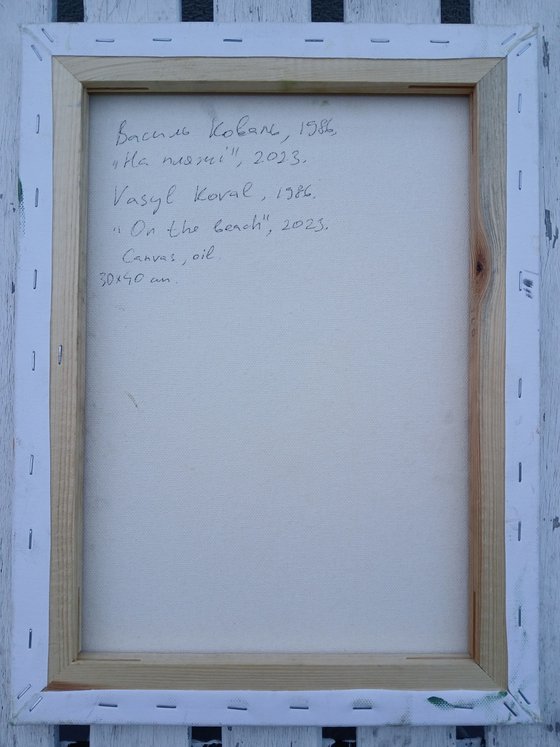 Василь Коваль, 1986.
"На пляжі", 2023.
Vasyl Koval, 1986.
"On the beach", 2023.
Canvas, oil.
30x40 cm.